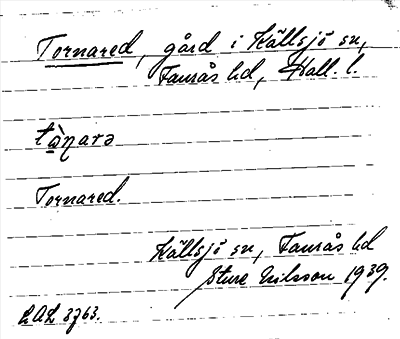 Tornared, gård i Källsjö sn,
Faurås hd, Hall. l.
tò̠ŋarə
Tornared.
Källsjö sn, Faurås hd
Sture Nilsson 1939.
LAL 3763.